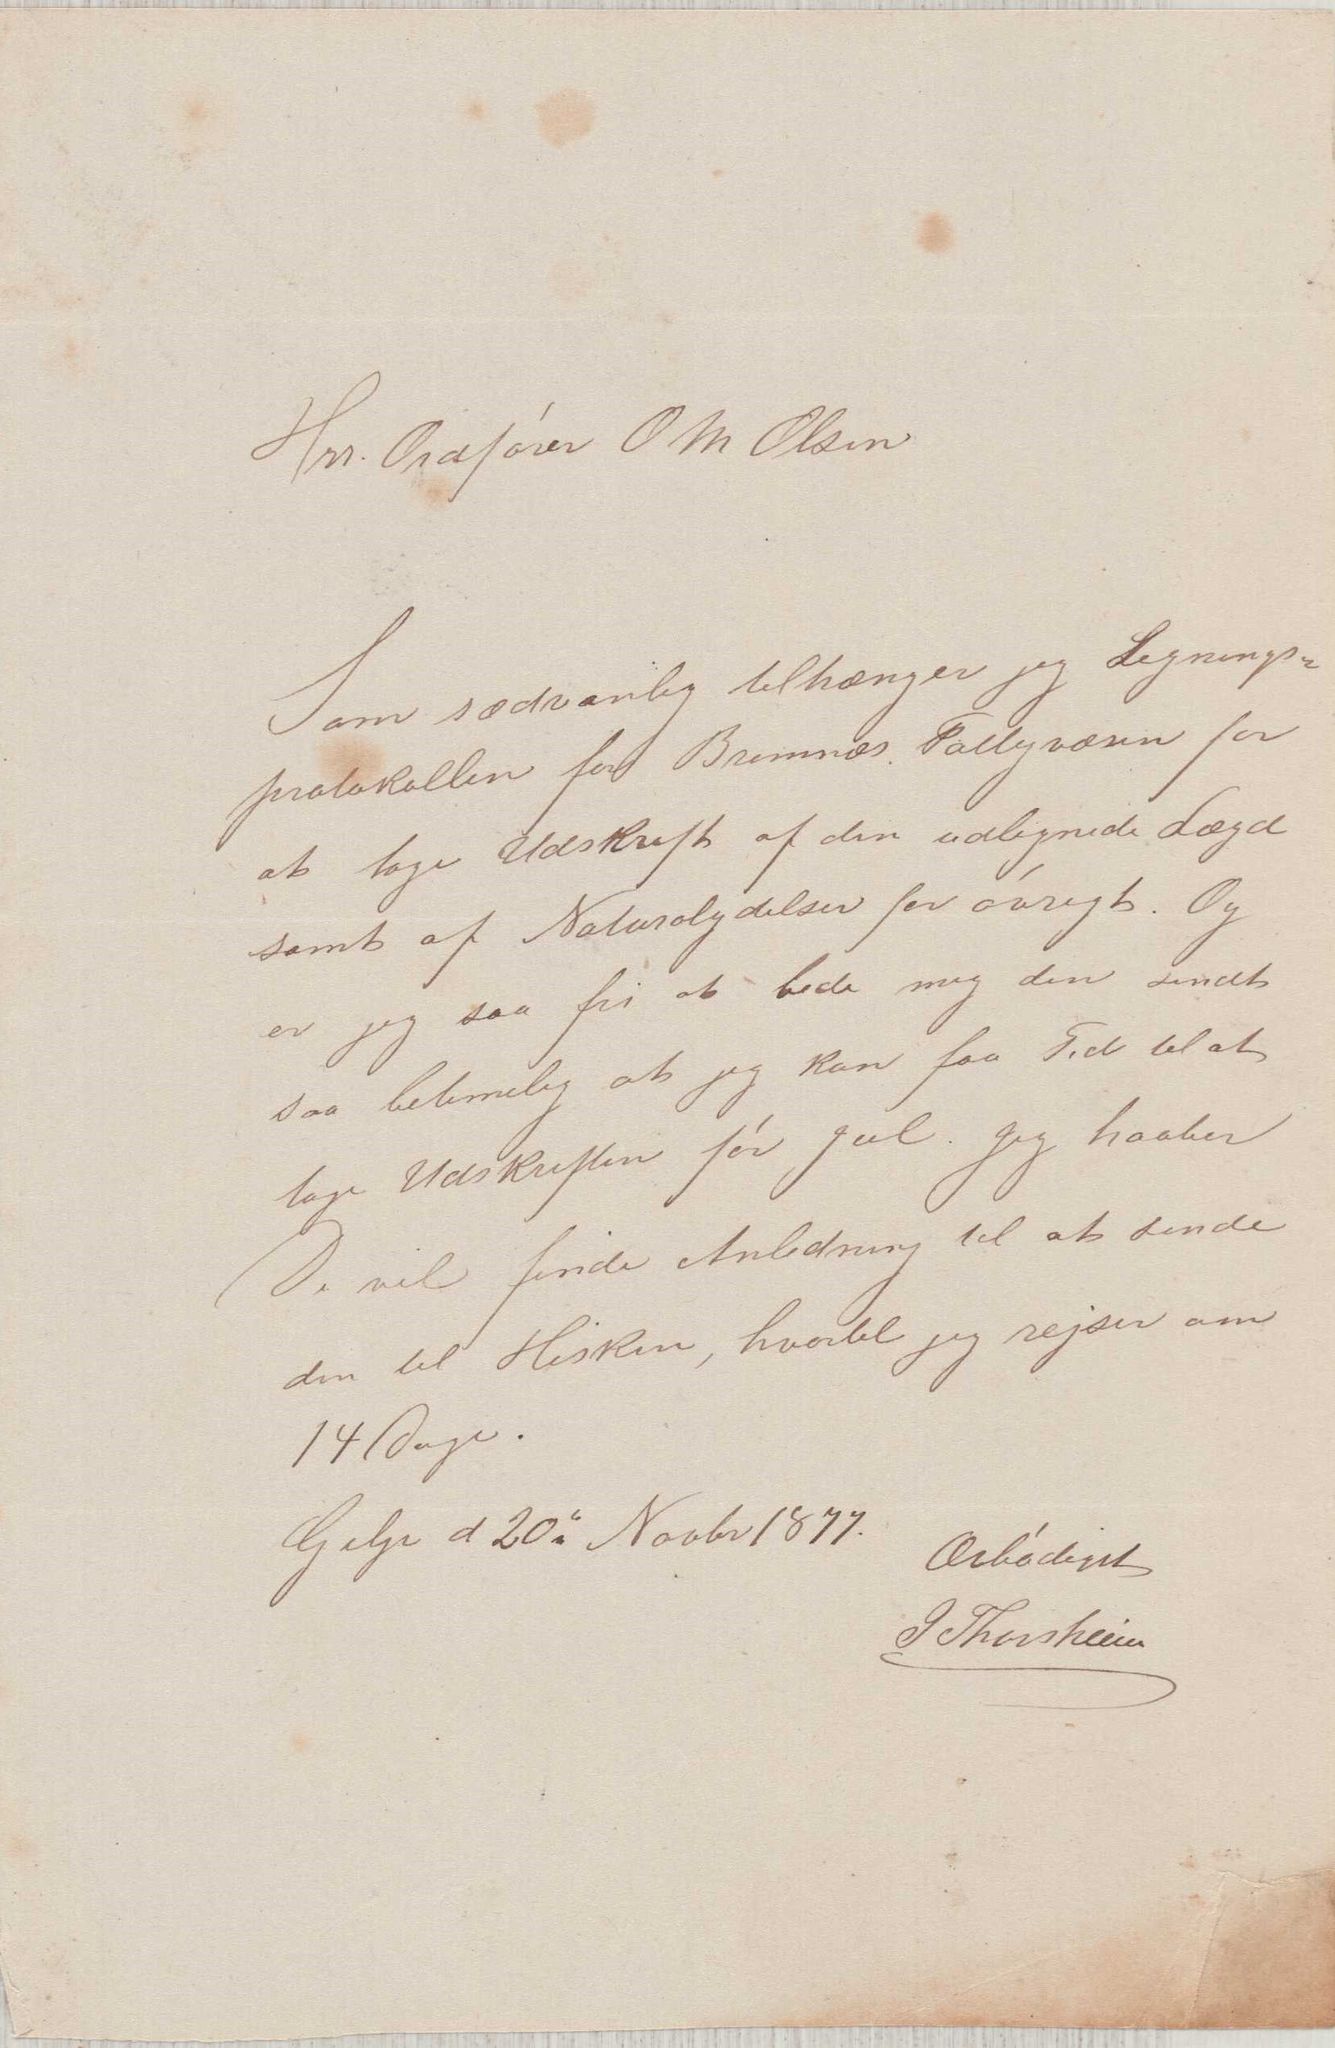 Hrr. Ordfører O M Olsen
Som sædvanlig tilhænger jeg Legnings-
protokollen for Bremnæs Fattigvæsen for
at tage Udskrift af den udlignede Lægd
samt af Naturalydelser for øvrigt. Og
er jeg saa fri at bede mig den sendt
saa betimelig at jeg kan faa Tid til at
tage Udskriften før Jul. Jeg haaber
De vil finde Anledning til at sende
den til Hisken, hvortil jeg rejser om
14 Dage.
d 20de Novbr 1877.
Ærbødigst
J Thorsheim